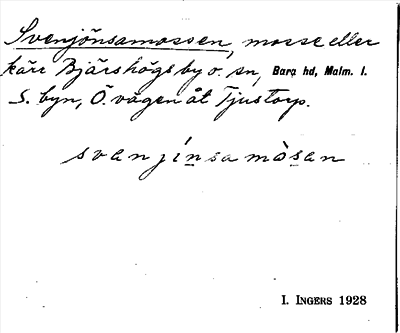 Svenjönsamossen, mosse eller
kärr Bjärshögs by o. sn, Bara hd, Malm. l.
S. byn, Ö. vägen åt Tjustorp.
svanjínsa mòsan
I. INGERS 1928